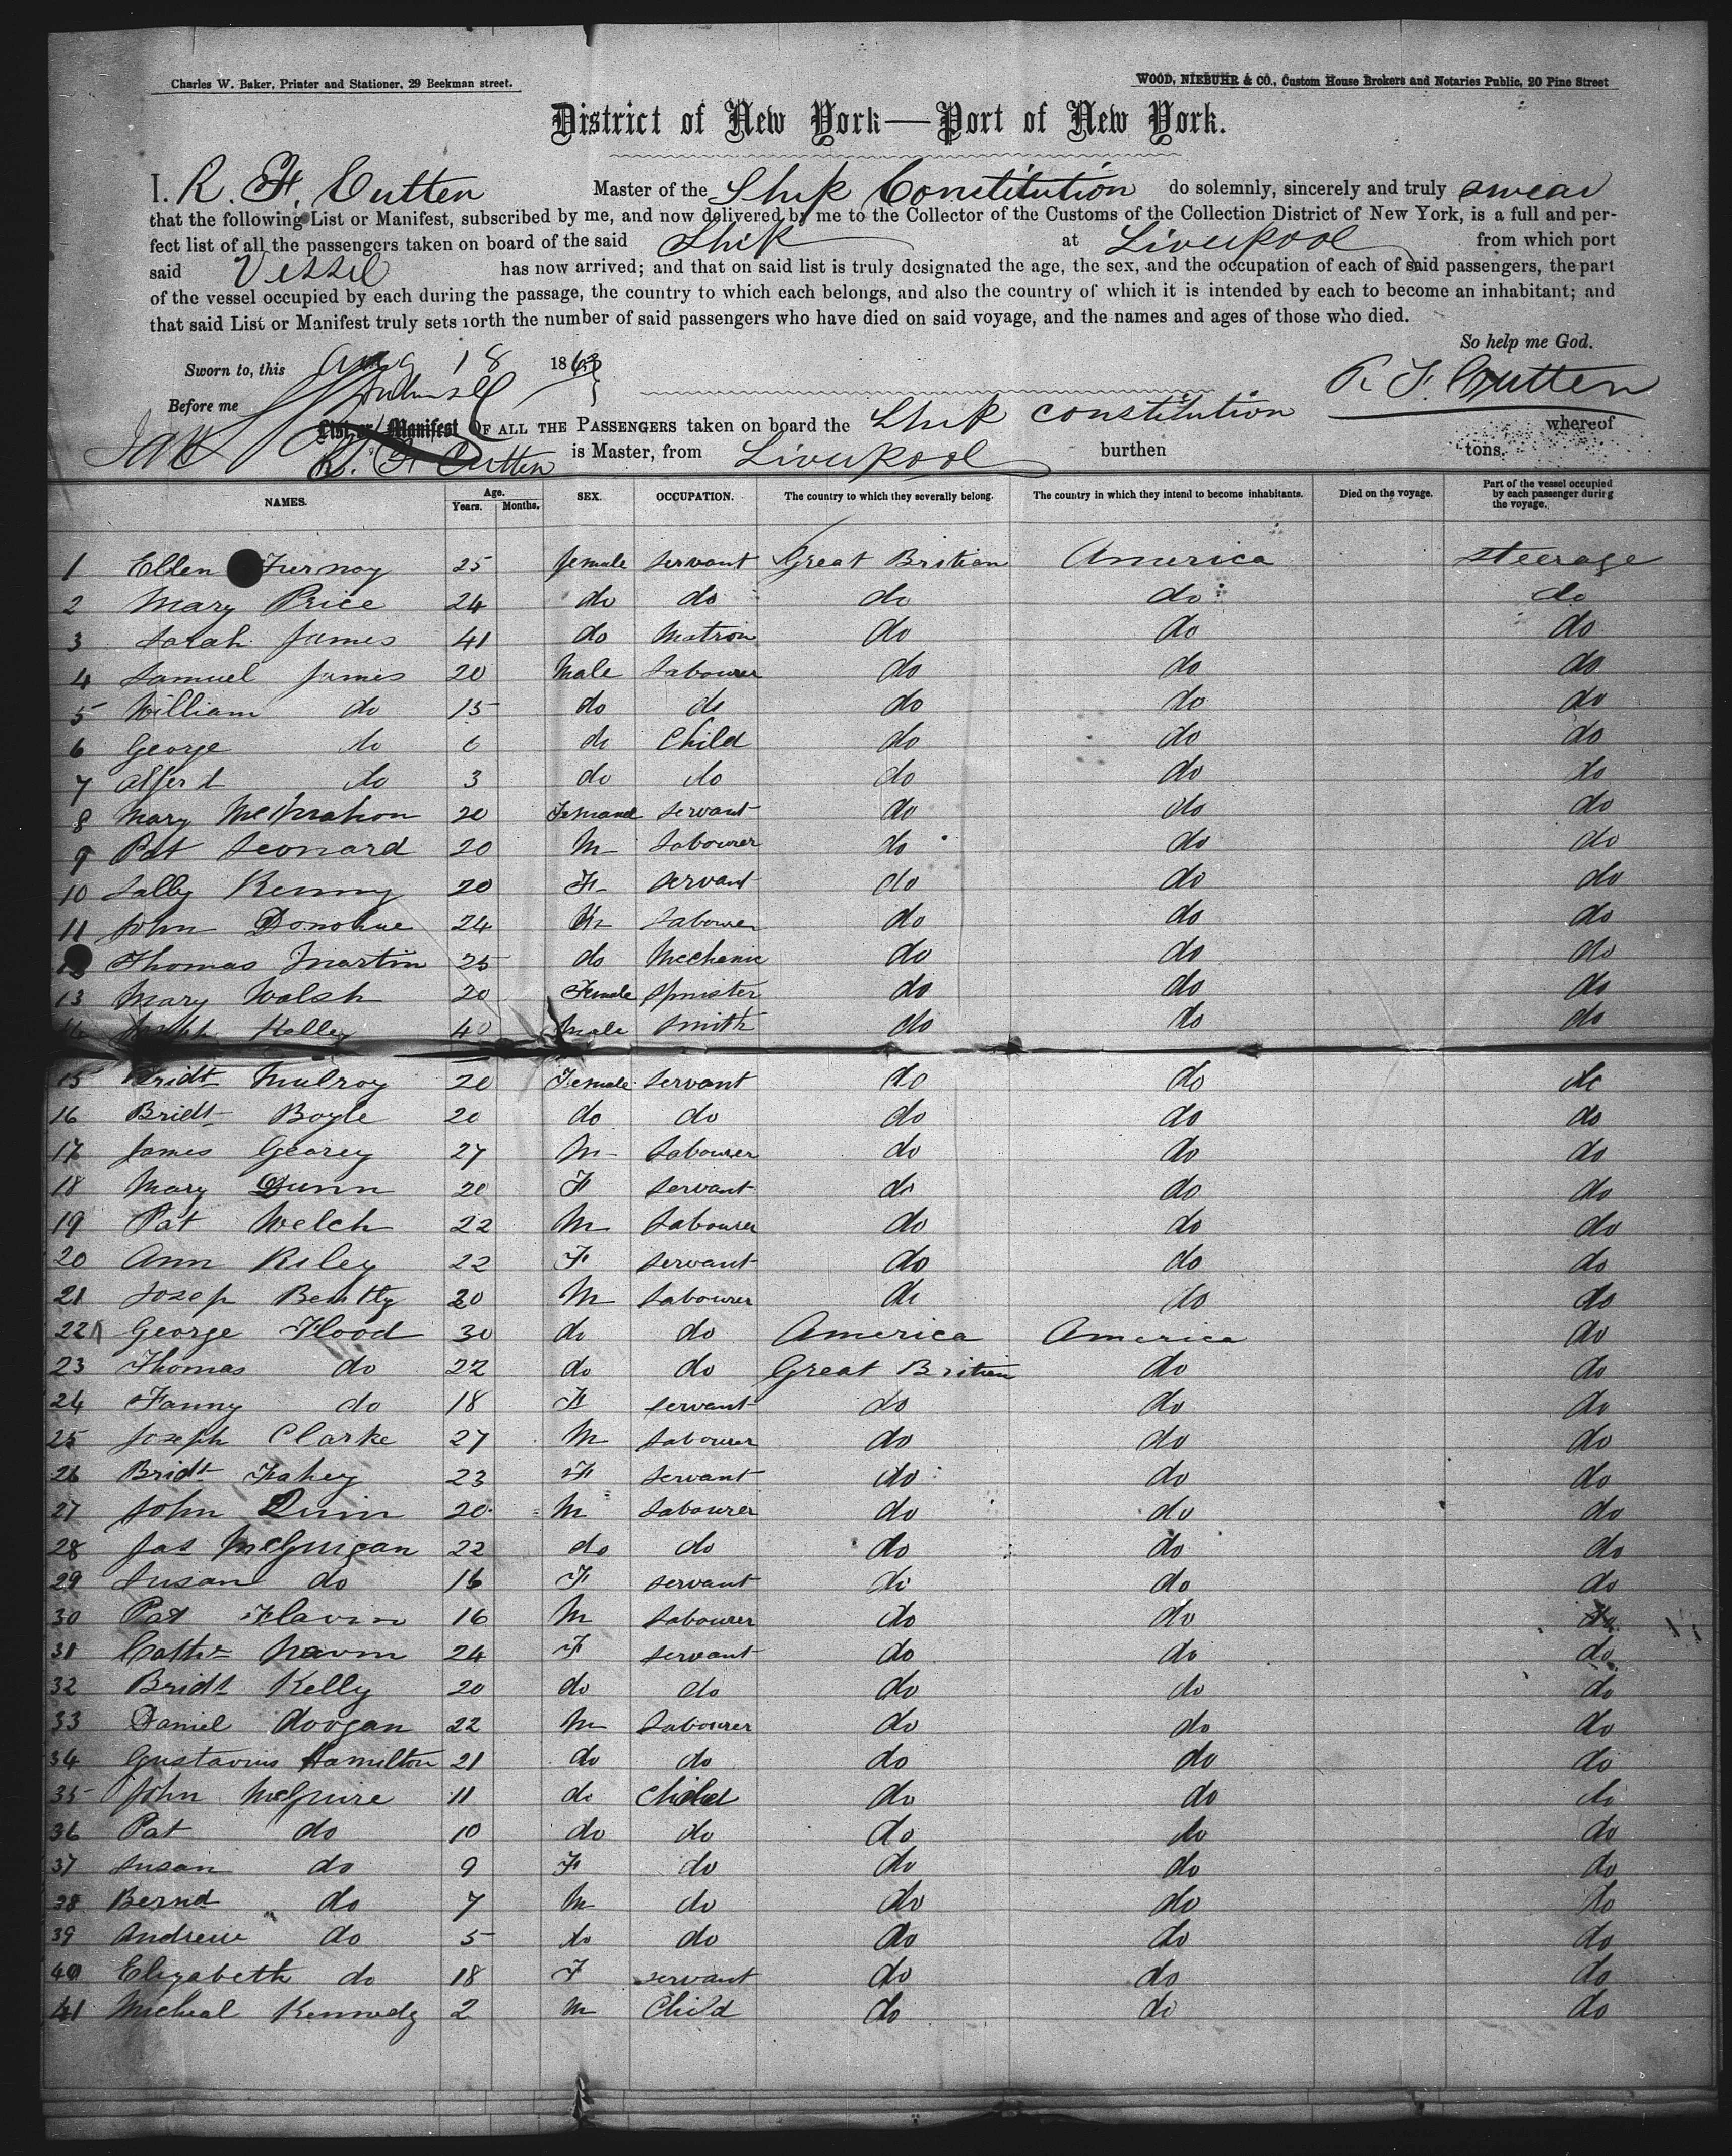 Charles W. Baker, Printer and Stationer, 29 Beekman street.
WOOD, NIEBUHR & CO., Custom House Brokers and Notaries Public, 20 Pine Street
District of New York—Port of New York.
I. R. F. Cutten Master of the Ship Constitution do solemnly, sincerely and truly swear
that the following List or Manifest, subscribed by me, and now delivered by me to the Collector of the Customs of the Collection District of New York, is a full and per-
fect list of all the passengers taken on board of the said Ship at Liverpool from which port
said Vessel has now arrived; and that on said list is truly designated the age, the sex, and the occupation of each of said passengers, the part
of the vessel occupied by each during the passage, the country to which each belongs, and also the country of which it is intended by each to become an inhabitant; and
that said List or Manifest truly sets forth the number of said passengers who have died on said voyage, and the names and ages of those who died.
So help me God.
Sworn to, this Aug 18 1863
R. F. Cutten
Before me
List or Manifest OF ALL THE PASSENGERS taken on board the Ship Constitution whereof
R. F. Cutten is Master, from Liverpool burthen tons.
NAMES. Age. Years. Months. SEX. OCCUPATION. The country to which they severally belong. The country in which they intend to become inhabitants. Died on the voyage. Part of the vessel occupied by each passenger during the voyage.
1 Ellen 25 female servant Great Britian America steerage
2 Mary Price 24 do do do do do
3 Sarah James 41 do Matron do do do
4 Samuel James 20 Male Labourer do do do
5 William do 15 do do do do do
6 George do 6 do Child do do do
7 Alferd do 3 do do do do do
8 Mary McMahon 20 servant do do do
9 Pat Leonard 20 M Labourer do do do
10 Sally Kenny 20 F servant do do do
11 John Donohue 24 M Labourer do do do
Thomas Martin 25 do Mechanic do do do
13 Mary Walsh 20 Female Spinster do do do
14 Joseph Kelley 40 Male Smith do do do
15 Bridt Mulroy 20 Female servant do do do
16 Bridt Boyle 20 do do do do do
17 James Gearey 27 M Labourer do do do
18 Mary Dunn 20 F servant do do do
19 Pat Welch 22 M Labourer do do do
20 Ann Riley 22 F servant do do do
21 Josep Bently 20 M Labourer do do do
22 George Flood 30 do do America America do
23 Thomas do 22 do do Great Britien do do
24 Fanny do 18 F servant do do do
25 Joseph Clarke 27 M Labourer do do do
26 Bridt Fahey 23 F servant do do do
27 John Quin 20 M Labourer do do do
28 Jas McGuigan 22 do do do do do
29 Susan do 16 F servant do do do
30 Pat Flavin 16 M Labourer do do do
31 24 F servant do do do
32 Bridt Kelly 20 do do do do do
33 Daniel doogan 22 M Labourer do do do
34 Gustavus Hamilton 21 do do do do do
35 John McGuire 11 do Child do do do
36 Pat do 10 do do do do do
37 Susan do 9 F do do do do
38 Bernd do 7 M do do do do
39 Andrew do 5 do do do do do
40 Elizabeth do 18 F servant do do do
41 Micheal Kennedy 2 M Child do do do